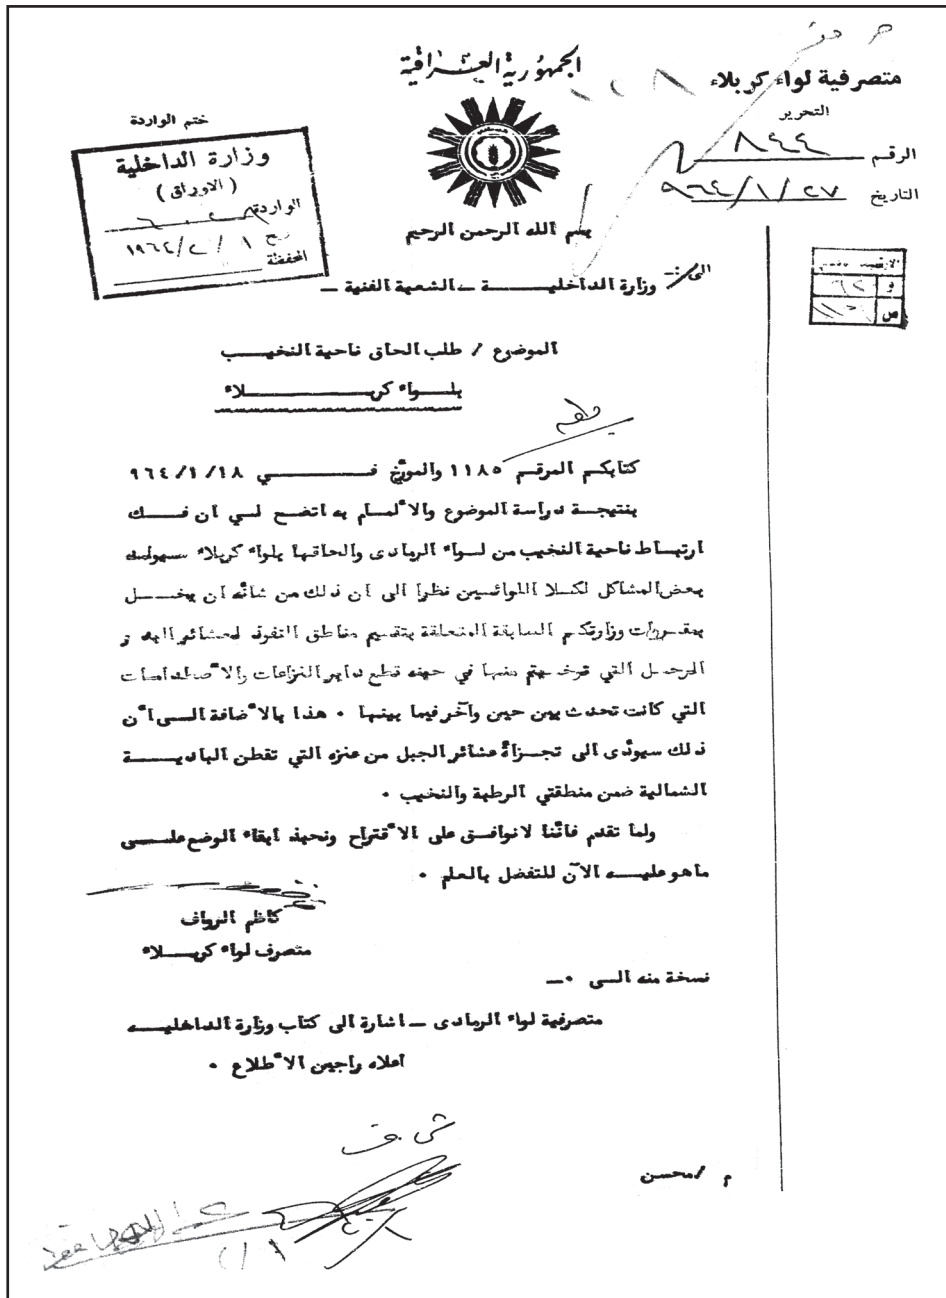 الجمهورية العراقية
متصرفية لواء كربلاء
التحرير
الرقم ٨٤٤
التاريخ ٩٦٤/١/٢٧
ختم الواردة
وزارة الداخلية
(الاوراق)
الواردة
١٩٦٤/٢/١
المحفظة
بسم الله الرحمن الرحيم
الى/ وزارة الداخليــة ــ الشعبة الفنية ــ
الموضوع / طلب الحاق ناحية النخيـب
بلــواء كربــلاء
كتابكـم المرقـم ١١٨٥ والمؤرخ فــي ٩٦٤/١/١٨
بنتيجـة دراسة الموضوع والألمـام به اتضـح لـي ان فــك
ارتبـاط ناحية النخيب من لـواء الرمادى والحاقـها بلـواء كربلاء سيولـد
بعض المشاكل لكـلا اللوائـين نظرا الى ان ذلك من شأنه ان يخـل
بمقـررات وزارتكـم السابقة المتعلقة بتقسيم مناطق النفوذ لعشائر البدو
الرحـل التي في حينه قطع دابر النزاعات والأصطدامات
التي كانت تحدث بين حين وآخر فيما بينـها ٠ هذا بالأضافة الـى أن
ذلك سيؤدى الى تجـزأة عشائر الجبل من عنزه التي تقطن الباديــة
الشمالية ضمن منطقتي الرطبة والنخيب ٠
ولما تقدم فأننا لانوافـق على الأقتراح ونحبذ ابقاء الوضع علــى
ماهو عليـه الآن للتفضل بالعلم ٠
كاظم الرواف
متصرف لواء كربـلاء
نسخة منه الـى ٠ــ
متصرفية لواء الرمادى ــ اشارة الى كتاب وزارة الداخليـه
اعلاه راجين الأطلاع ٠
م /محسن